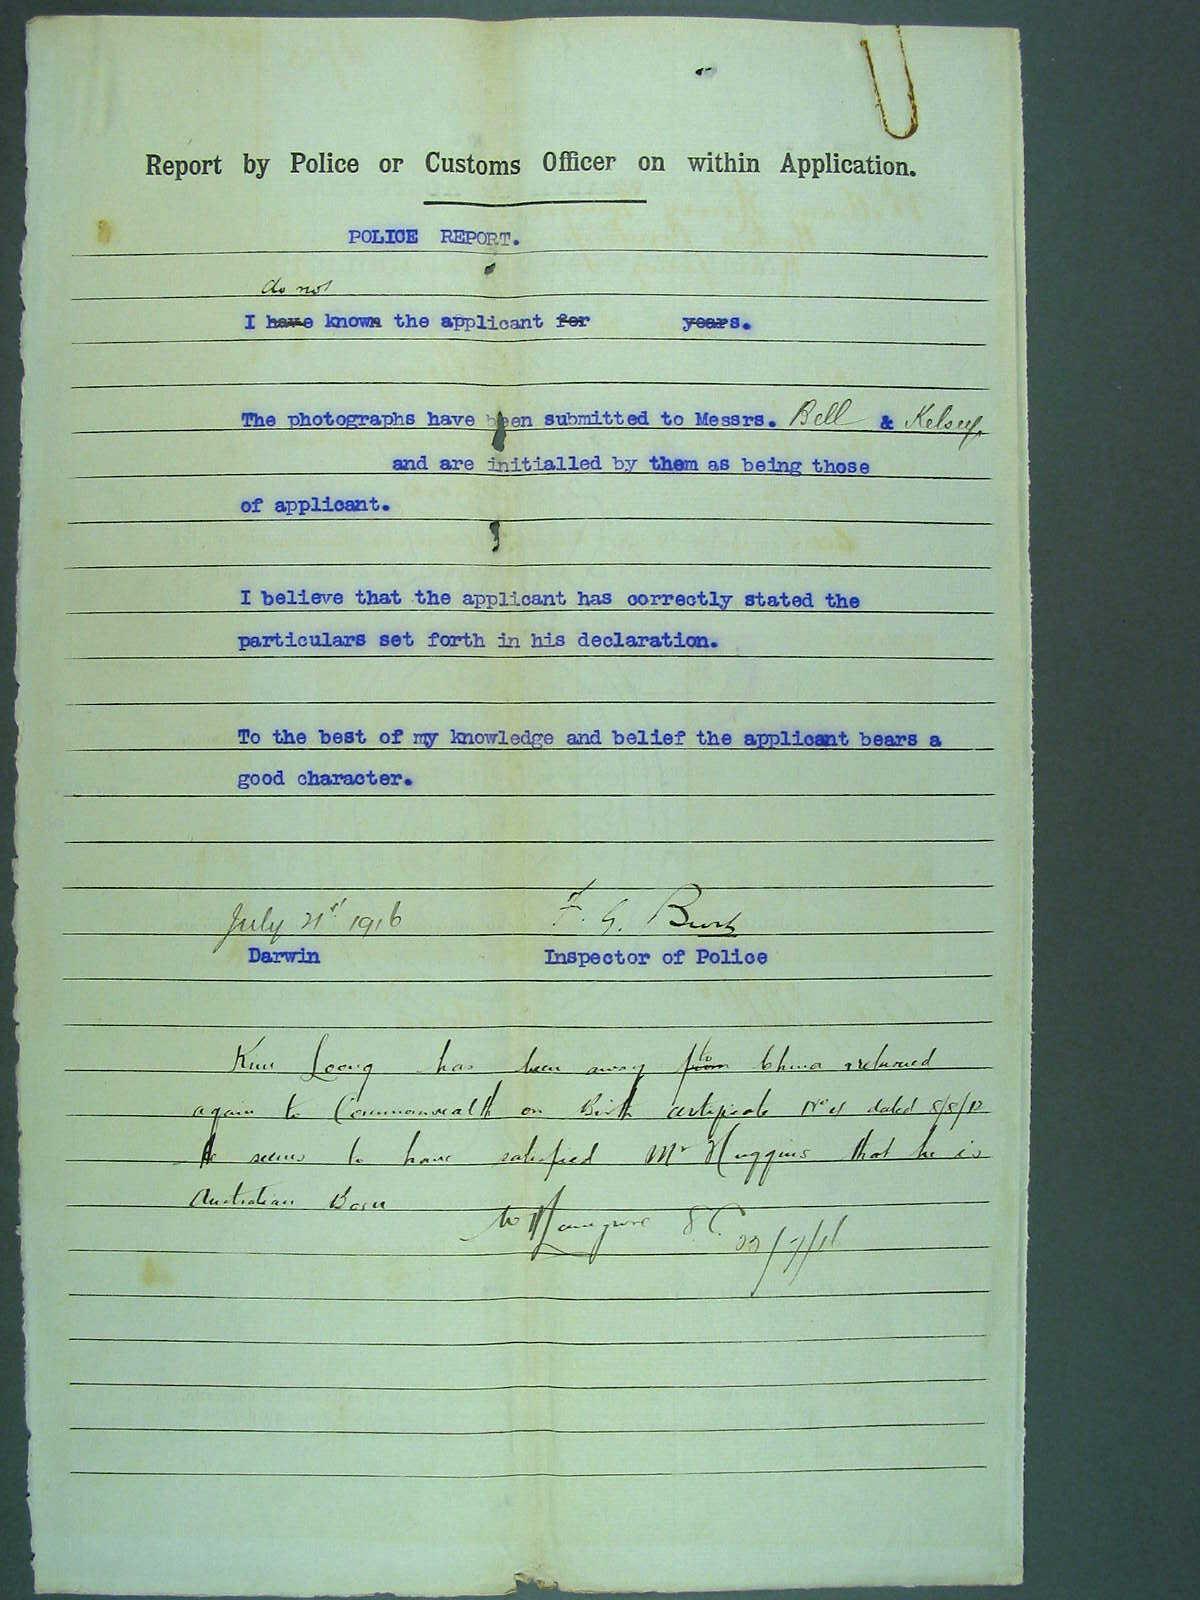 Report by Police or Customs Officer on within Application.
POLICE REPORT.
do not
I have known the applicant for years.
The photographs have been submitted to Messrs. Bell & Kelsey,
and are initialled by them as being those
of applicant.
I believe that the applicant has correctly stated the
particulars set forth in his declaration.
To the best of my knowledge and belief the applicant bears a
good character.
July 21st 1916 F. G. Burt
Darwin Inspector of Police
Loong has been away from to China & returned
again to Commonwealth on Birth certificate No dated
He seems to have satisfied Mr Huggins that he is
Australian Born